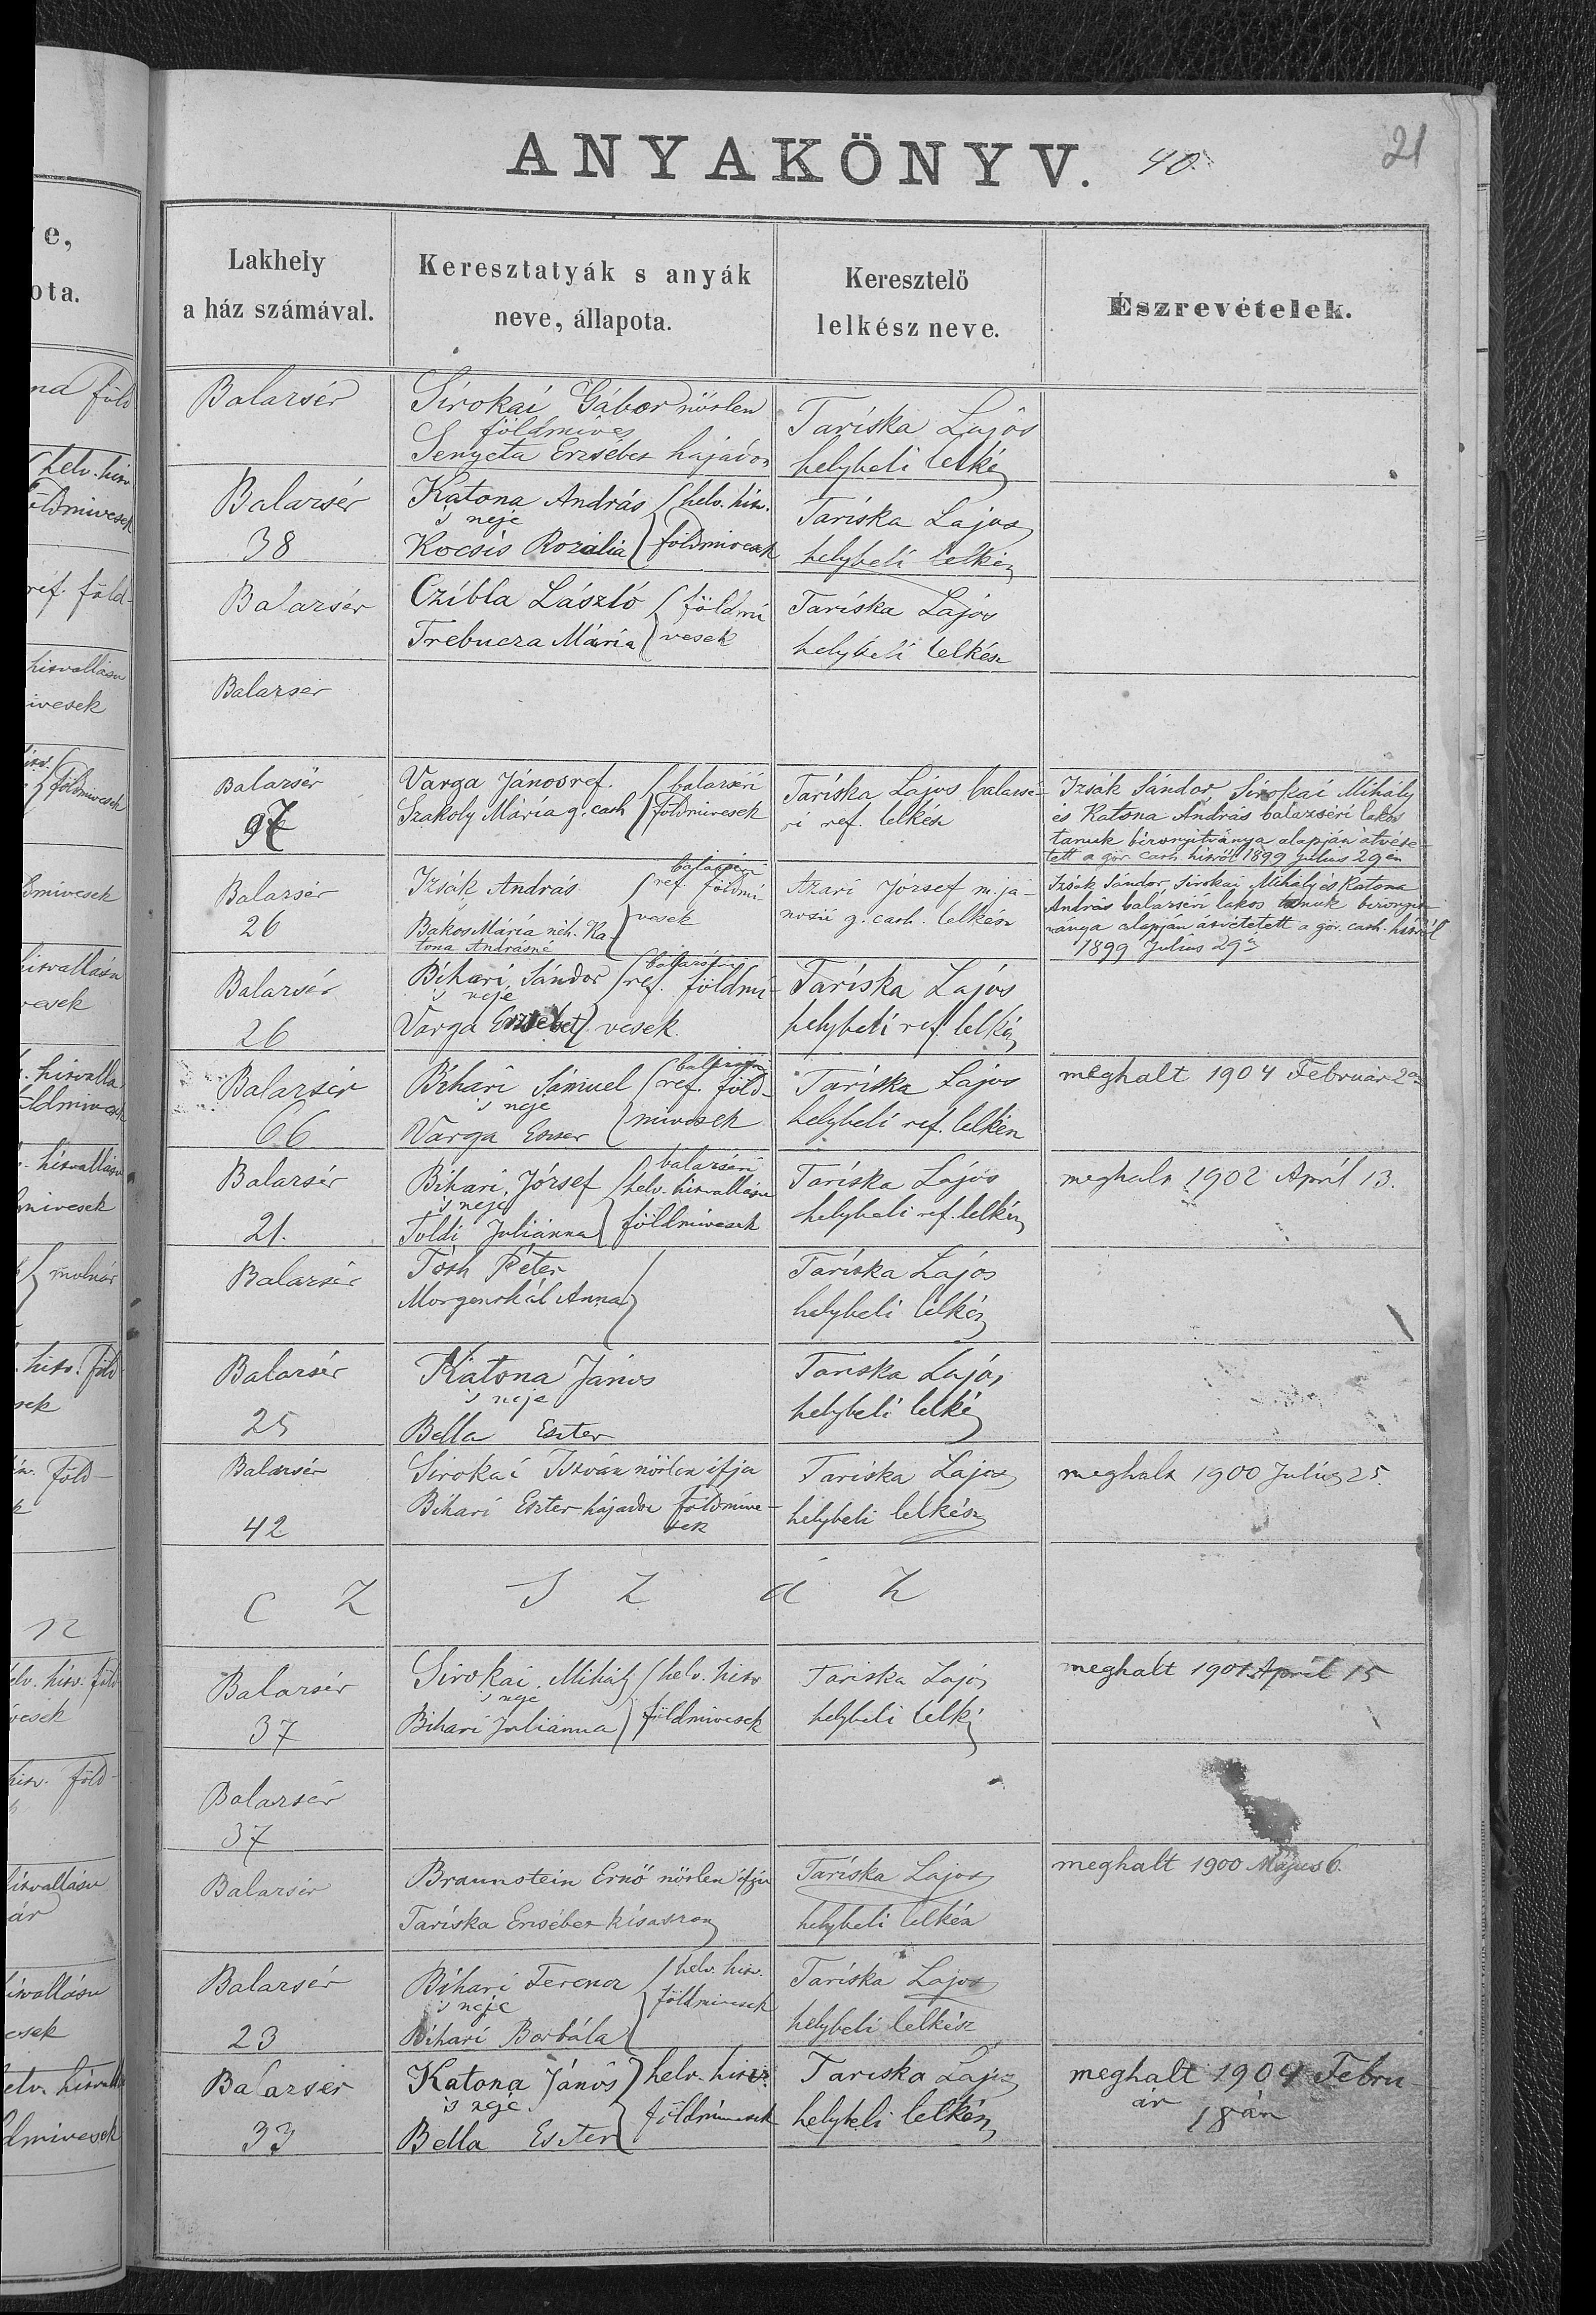 ANYAKÖNYV. 40. 21
Lakhely
a ház számával.
Keresztatyák s anyák
neve, állapota.
Keresztelő
lelkész neve.
Észrevételek.
Balazsér
Sirokai Gábor nőtlen
földmíves
Senyeta Erzsébet hajadon
Tariska Lajos
helybeli lelkész
Balazsér
38
Katona András helv. hitv.
s neje
Kocsis Rozália földmivesek
Tariska Lajos
helybeli lelkész
Balazsér
Czibla László földmi
Trebucza Mária vesek
Tariska Lajos
helybeli lelkész
Balazsér
Balazsér
97
Varga János ref. balazséri
Szakoly Mária g. cath földmivesek
Tariska Lajos balazsé-
ri ref. lelkész
Izsák Sándor, Sirokai Mihály
és Katona András balazséri lakos
tanuk bizonyitványa alapján átvéte-
tett a gör. cath. hitről 1899 Julius 29én
Balazsér
26
Izsák András balazséri
ref. földmi
Bakos Mária néh. Ka- vesek
tona Andrásné
Azari József m. já-
nosii g. cath. lelkész
Izsák Sándor, Sirokai Mihály és Katona
András balazséri lakos tanuk bizonyit
ványa alapján átvétetett a gör. cath. hitről
1899 Julius 29n
Balazsér
26
Bihari Sándor balazséri
s neje ref. földmi-
Varga Erzsébet vesek
Tariska Lajos
helybeli ref. lelkész
Balazsér
66
Bihari Sámuel balazséri
s neje ref. föld-
Varga Eszter mivesek
Tariska Lajos
helybeli ref. lelkész
meghalt 1904 Február 2án
Balazsér
21.
Bihari József balazséri
s neje helv. hitvallásu
Toldi Juliánna földmivesek
Tariska Lajos
helybeli ref. lelkész
meghalt 1902 April 13.
Balazsér
Tóth Péter
Anna
Tariska Lajos
helybeli lelkész
Balazsér
25
Katona János
s neje
Bella Eszter
Tariska Lajos
helybeli lelkész
Balazsér
42
Sirokai István nőtlen ifju
Bihari Eszter hajadon földmive-
sek
Tariska Lajos
helybeli lelkész
meghalt 1900 Julius 25.
C Z S Z á Z
Balazsér
37
Sirokai Mihály helv. hitv
s neje
Bihari Juliánna földmivesek
Tariska Lajos
helybeli lelkész
meghalt 1901 April 15
Balazsér
37
Balazsér
Braunstein Ernő nőtlen ifju
Tariska Erzsébet kisasszony
Tariska Lajos
helybeli lelkész
meghalt 1900 Május 6.
Balazsér
23
Bihari Ferencz helv. hitv.
s neje földmivesek
Bihari Borbála
Tariska Lajos
helybeli lelkész
Balazsér
33
Katona János helv. hitv.
s neje
Bella Eszter földmivesek
Tariska Lajos
helybeli lelkész
meghalt 1904 Febru-
ár 18án